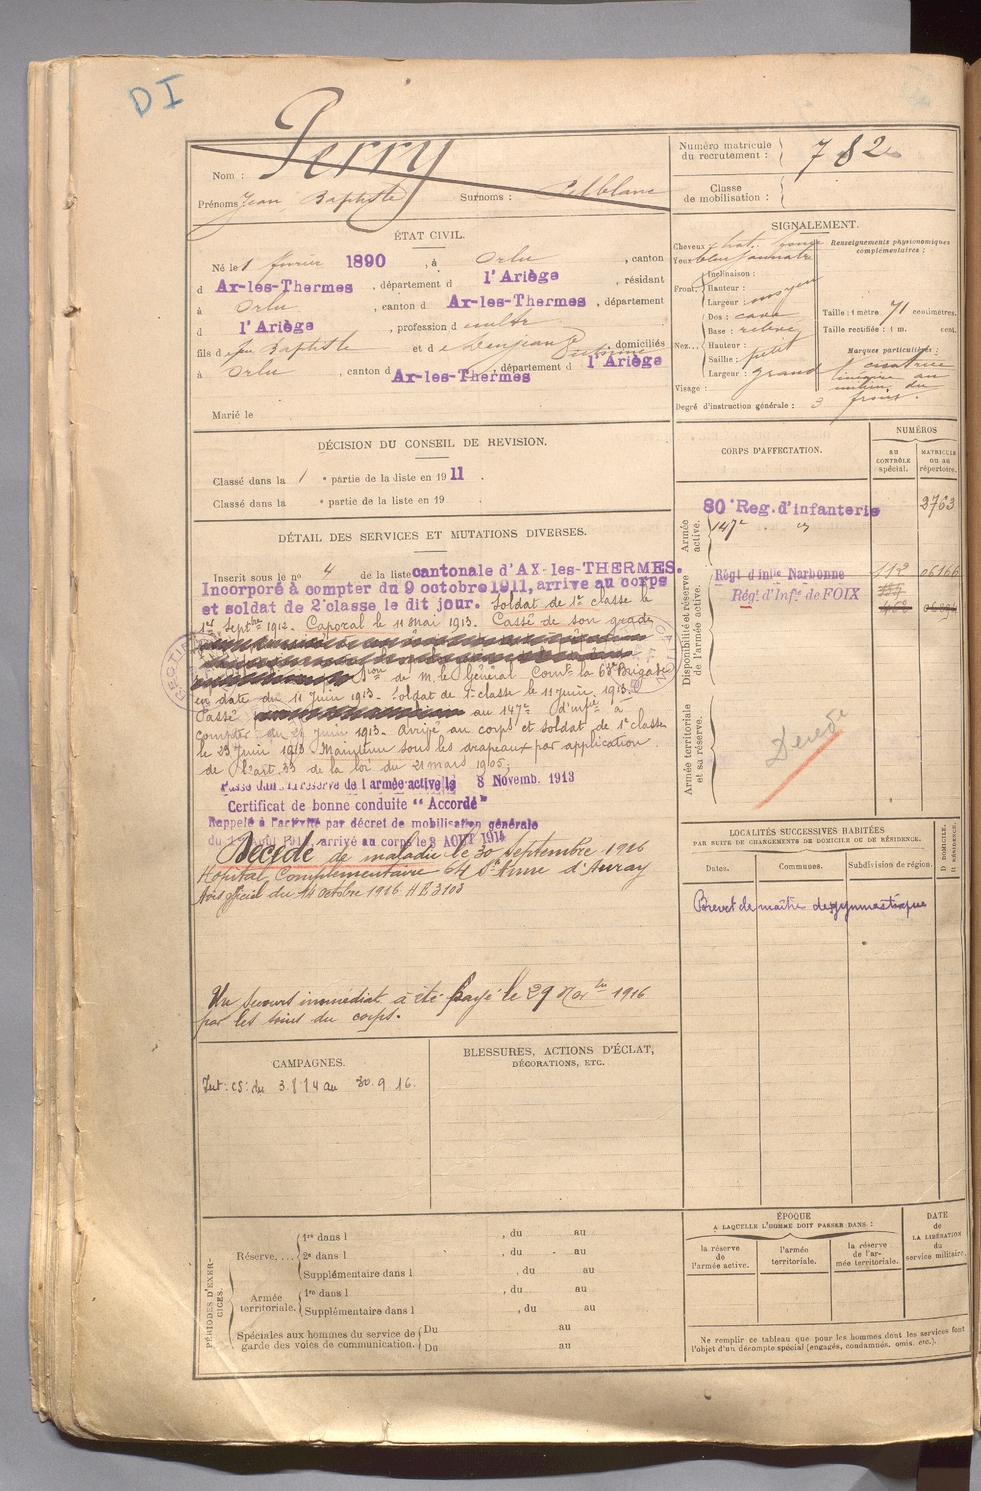 DI
Nom : Perry
Prénoms Jean Baptiste Surnoms : Pelblanc
Numéro matricule
du recrutement : 782
Classe
de mobilisation :
ÉTAT CIVIL.
Né le 1 février 1890, à Orlu, canton
d Ax-les-Thermes, département d l'Ariège, résidant
à Orlu, canton d Ax-les-Thermes, département
d l'Ariège, profession d cultr
fils d feu Baptiste et d domiciliés
à Orlu, canton d Ax-les-Thermes, département d l'Ariège
Marié le
SIGNALEMENT.
Cheveux chat. foncé
Yeux bleu jaunatre
Front. Inclinaison :
Hauteur :
Largeur : moyen
Nez... Dos : cave
Base : relevé
Hauteur :
Saillie : petit
Largeur : grand
Visage :
Degré d'instruction générale : 3
Renseignements physionomiques
complémentaires :
Taille : 1 mètre 71 centimètres.
Taille rectifiée : 1 m. cent.
Marques particulières :
1 cicatrice
linéaire au
milieu du
front.
DÉCISION DU CONSEIL DE REVISION.
Classé dans la 1 e partie de la liste en 1911.
Classé dans la e partie de la liste en 19 .
DÉTAIL DES SERVICES ET MUTATIONS DIVERSES.
Inscrit sous le no 4 de la liste cantonale d'AX-les-THERMES.
Incorporé à compter du 9 octobre 1911, arrivé au corps
et soldat de 2e classe le dit jour. Soldat de 1re classe le
1er Septbre 1912. Caporal le 11 Mai 1913. Cassé de son grade
de M. le Général Comt la 63e Brigade
en date du 11 Juin 1913. Soldat de 2e classe le 11 Juin 1913.
Passé au 147e d'infie à
compter du 21 Juin 1913. Arrivé au corps et soldat de 1e classe
le 23 Juin 1913 Maintenu sous les drapeaux par application
de l'art. 33 de la loi du 21 mars 1905,
Passé dans la réserve de l'armée active le 8 Novemb. 1913
Certificat de bonne conduite "Accordé"
Rappelé à l'activité par décret de mobilisation générale
du 1er Août 1914, arrivé au corps le 3 AOUT 1914
Décédé de maladie le 30 Septembre 1916
Hôpital Complementaire 64 Ste Anne d'Auray
Avis officiel du 14 octobre 1916
Un secours immédiat a été payé le 29 Novbre 1916
par les soins du corps.
CORPS D'AFFECTATION.
NUMÉROS
AU CONTRÔLE spécial.
MATRICULE ou au répertoire.
Armée active.
80e Reg. d'infanterie 2763
147e
Disponibilité et réserve de l'armée active.
Régt d'infie Narbonne 112 06166
Régt d'Infie de FOIX
Armée territoriale et sa réserve.
Décédé
LOCALITÉS SUCCESSIVES HABITÉES
PAR SUITE DE CHANGEMENTS DE DOMICILE OU DE RÉSIDENCE.
D DOMICILE. R RÉSIDENCE.
Dates. Communes. Subdivision de région.
Brevet de maître de gymnastique
CAMPAGNES.
Int: CS: du 3.8.14 au 30.9.16.
BLESSURES, ACTIONS D'ÉCLAT,
DÉCORATIONS, ETC.
PÉRIODES D'EXERCICES.
Réserve....
1re dans l , du au
2e dans l , du au
Supplémentaire dans l , du au
Armée territoriale.
1re dans l , du au
Supplémentaire dans l , du au
Spéciales aux hommes du service de
garde des voies de communication.
Du au
Du au
ÉPOQUE
A LAQUELLE L'HOMME DOIT PASSER DANS :
la réserve de l'armée active.
l'armée territoriale.
la réserve de l'armée territoriale.
DATE de LA LIBÉRATION du service militaire.
Ne remplir ce tableau que pour les hommes dont les services font
l'objet d'un décompte spécial (engagés, condamnés, omis, etc.).